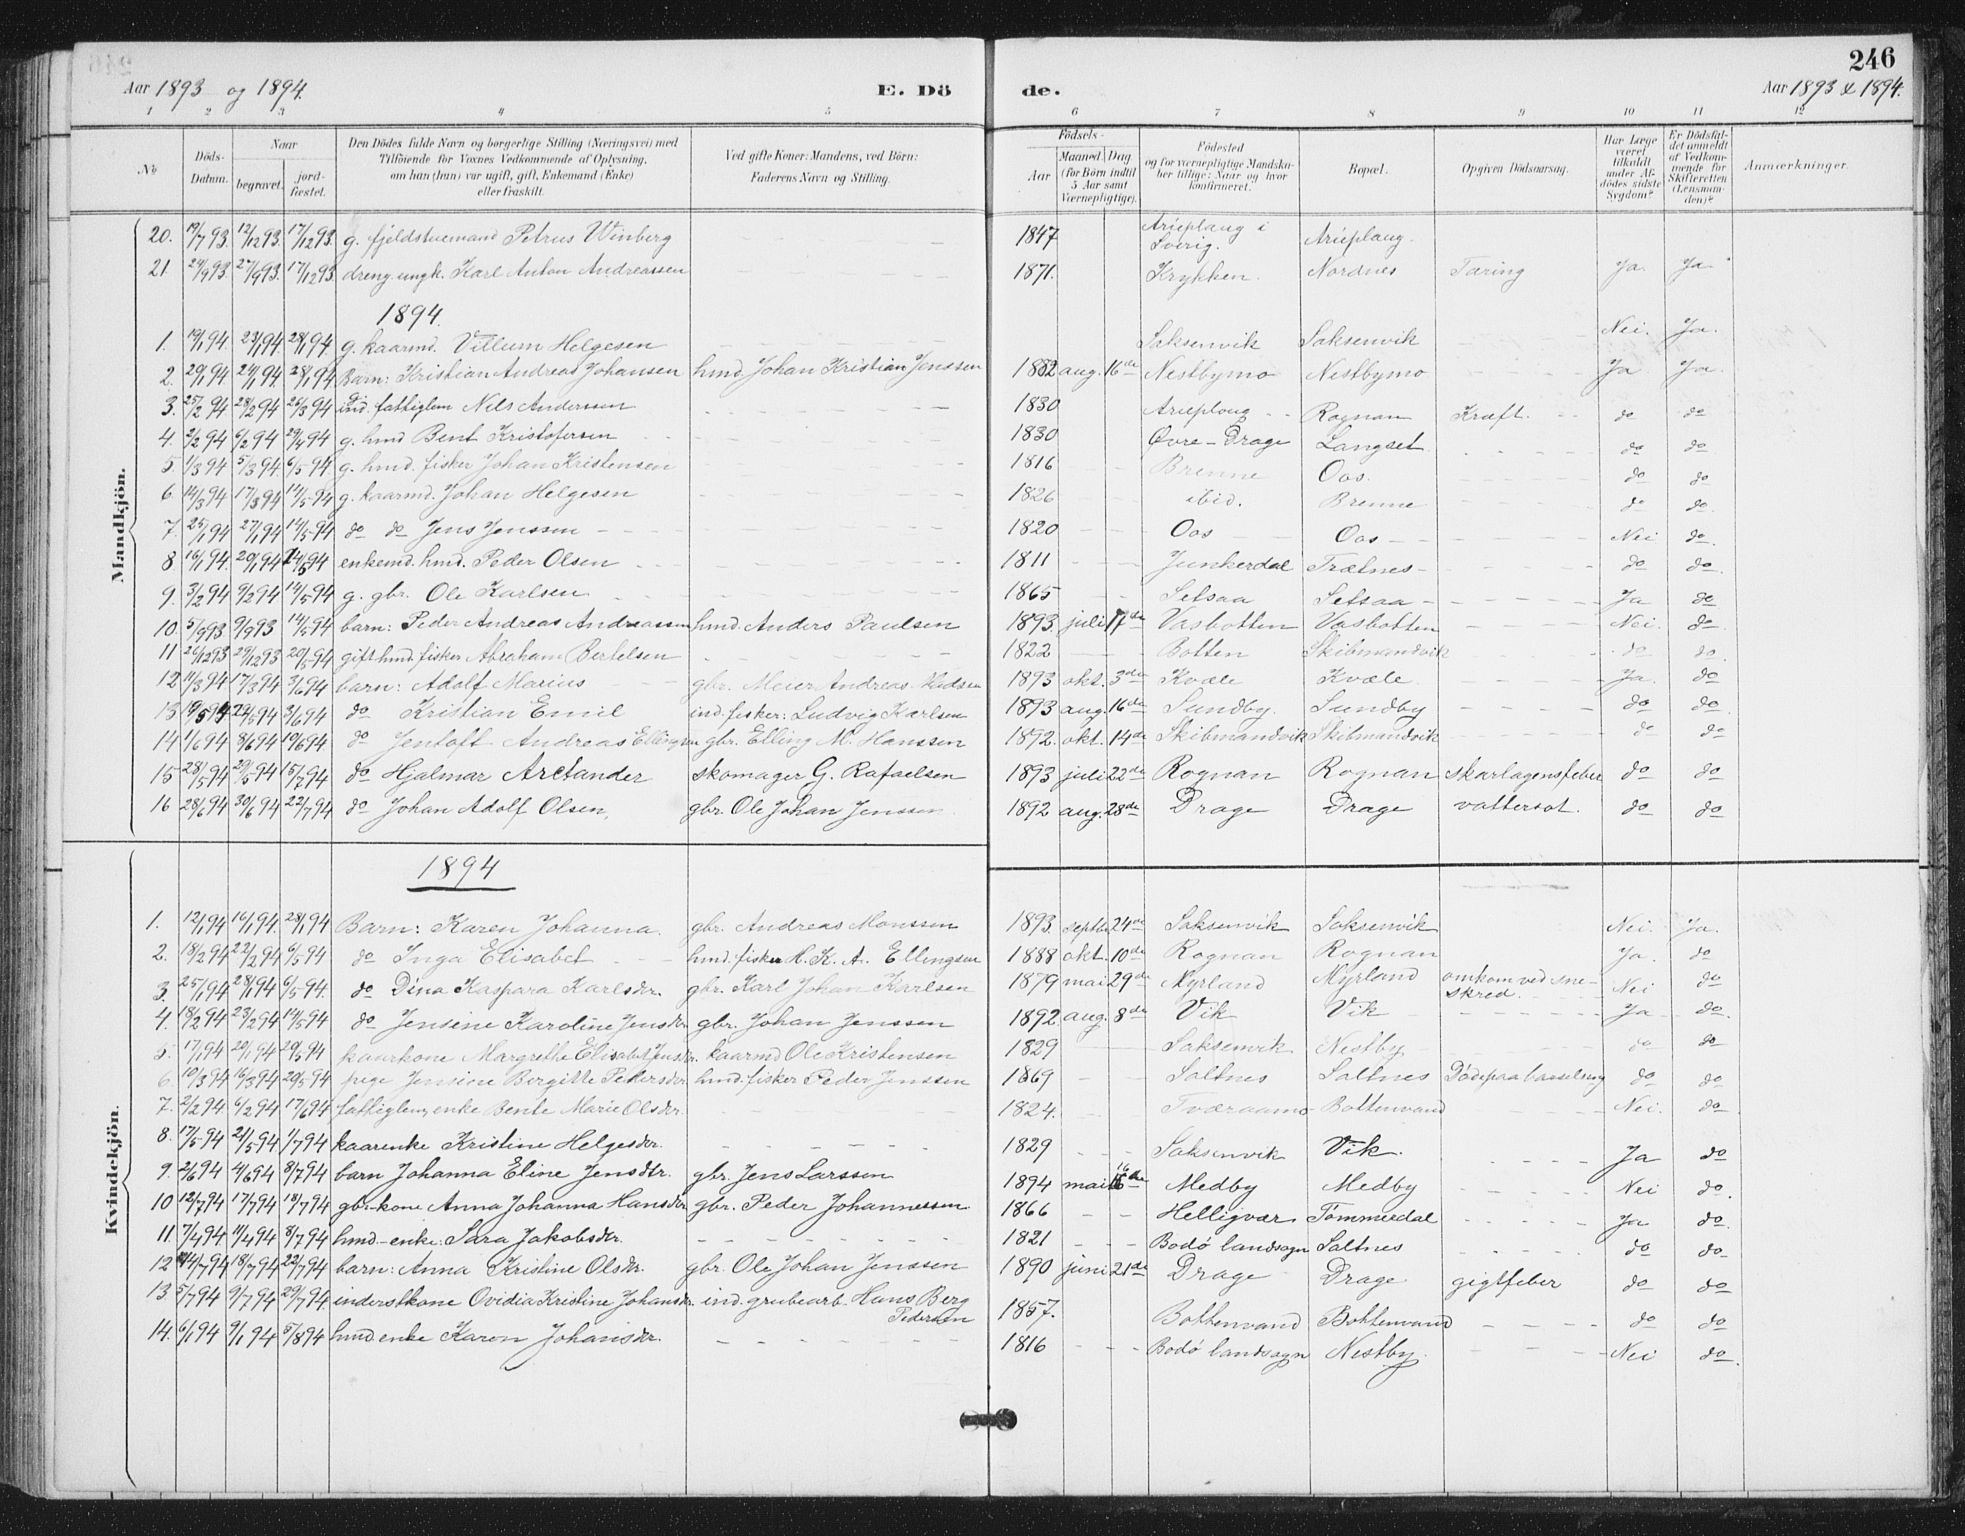 246
Aar 1893 og 1894. E. Dö de. Aar 1893 & 1894.
1 2 3 4 5 6 7 8 9 10 11 12
№
Döds-Datum.
Naar
begravet.
jord-fæstet.
Den Dödes fulde Navn og borgerlige Stilling (Næringsvei) med
Tilföiende for Voxnes Vedkommende af Oplysning,
om han (hun) var ugift, gift, Enkemand (Enke)
eller fraskilt.
Ved gifte Koner: Mandens, ved Börn:
Faderens Navn og Stilling.
Födsels-
Aar
Maaned. Dag
(for Börn indtil
5 Aar samt
Værnepligtige).
Födested
og for værnepligtige Mandska-
ber tillige: Naar og hvor
konfirmeret.
Bopæl.
Opgiven Dödsaarsag.
Har Læge
været
tilkaldt
under Af-
dödes sidste
Sygdom?
Er Dödsfal-
det anmeldt
af Vedkom-
mende for
Skifteretten
(Lensman-
den)?
Anmærkninger.
Mandkjön.
20. 19/7 93. 12/12 93. 17/12 93. g. fjeldstuemand Petrus Winberg 1847 Arieplaug i Sverig. Arieplaug.
21. 24/9 93. 27/9 93. 17/12 93. dreng. ungk. Karl Anton Andreassen 1871. Krykken. Nordnes Tæring Ja. Ja
1894.
1. 19/1 94. 23/1 94. 28/1 94 g. kaarmd. Villum Helgesen Saksenvik Saksenvik Nei. Ja.
2. 20/1 94 24/1 94 28/1 94 Barn: Kristian Andreas Johansen hmd. Johan Kristian Jenssen 1882 aug. 16de Nestbymo Nestbymo Ja Ja.
3. 25/2 94 28/2 94 26/3 94 g. ind. fattiglem Nils Anderssen 1830 Arieploug Rognan Kræft. do do
4. 2/2 94 6/2 94 29/4 94 g. hmd Bent Kristofersen 1830 Øvre-Drage Langset do do
5 1/3 94 5/3 94 6/5 94 g. hmd. fisker Johan Kristensen 1816 Brenne Oos. do do
6. 14/3 94 17/3 94 14/5 94 g. kaarmd. Johan Helgesen 1826 ibid. Brenne do do.
7. 25/1 94 27/1 94 14/5 94 do do Jens Jenssen 1820 Oos Oos Nei do.
8 16/1 94. 20/1 94 14/5 94 enkemd. hmd. Peder Olsen 1811 Junkerdal Trætnes do do.
9. 3/2 94 9/2 94 14/5 94 g. gbr. Ole Karlsen 1865 Setsaa Setsaa Ja do
10. 5/9 93 9/9 93 14/5 94 barn: Peder Andreas Andreassen hmd. Anders Paulsen 1893. juli 17de Vasbotten Vasbotten Nei. do.
11 26/12 93 29/12 93 20/5 94 gift hmd. fisker Abraham Bertelsen 1822 Botten Skibmandvik do do.
12 11/3 94 17/3 94 3/6 94 barn: Adolf Marius gbr. Meier Andreas 1893 okt. 3de Kvæle Kvæle Ja. do
13 19/5 94 29/5 94 3/6 94 do Kristian Emil ind. fisker: Ludvig Karlsen 1893 aug. 16de Sundby. Sundby do do.
14 1/6 94 8/6 94 10/6 94 do Jentoft Andreas Ellingsen gbr. Elling M. Hanssen 1892. okt. 14de Skibmandvik Skibmandvik do do
15 28/5 94 29/5 94 15/7 94 do Hjalmar Arctander skomager G. Rafaelsen 1893 juli 22de Rognan Rognan skarlagensfeber do do
16 28/6 94 30/6 94 22/7 94 do Johan Adolf Olsen, gbr. Ole Johan Jenssen 1892 aug. 28de Drage Drage vattersot. do do
Kvindekjön.
1894
1. 12/1 94 16/1 94. 28/1 94 Barn: Karen Johanna. gbr. Andreas Monssen 1893. septbr 24de Saksenvik Saksenvik Nei. Ja.
2. 18/2 94 22/2 94 6/5 94 do Inga Elisabet hmd. fisker H. K. A. Ellingsen 1888 okt. 10de Rognan Rognan Ja. do
3. 25/1 94 28/1 94 6/5 94. do Dina Kaspara Karlsdtr. gbr. Karl Johan Karlsen 1879 mai 29de Myrland Myrland omkom ved sne-skred. Nei do
4. 18/2 94 23/2 94 14/5 94 do Jensine Karoline Jensdtr gbr. Johan Jenssen 1892. aug. 8de Vik Vik Ja do.
5. 17/1 94 20/1 94 20/5 94 kaarkone Margrethe Elisabet Jensdtr. kaarmd Ole Kristensen 1829 Saksenvik Nestby do do
6. 10/3 94 16/3 94 20/5 94 pige Jensine Bergitte Pedersdtr hmd. fisker Peder Jenssen 1869 Saltnes Saltnes Dödepaa barselseng do do
7. 2/2 94. 6/2 94 17/6 94 fattiglem, enke Bente Marie Olsdtr. 1824. Tværaamo Bottenvand Nei. do
8. 17/5 94 21/5 94 1/7 94 kaarenke Kristine Helgesdtr. 1829 Saksenvik Vik. Ja do
9. 2/6 94 4/6 94 8/7 94 barn Johanna Eline Jensdtr. gbr. Jens Larssen 1894 mai 16de Medby Medby Nei do.
10 12/7 94 17/7 94 18/7 94 gbr-kone Anna Johanna Hansdtr gbr. Peder Johannessen 1866 Helligvær Tömmerdal Ja do
11. 7/4 94 11/4 94 8/7 94 hmd-enke: Sara Jakobsdtr. 1821 Bodø landsogn Saltnes do do
12 14/7 94 18/7 94 22/7 94 barn: Anna Kristine Olsdtr. gbr. Ole Johan Jenssen 1890 juni 21de Drage Drage gigtfeber do do
13 5/7 94 9/7 94 29/7 94 inderstkone Ovidia Kristine Johansdtr. ind. grubearb. Hans Berg Pedersen 1857. Bottenvand Bottenvand do do
14. 6/1 94 9/1 94 5/8 94 hmd. enke Karen Johansdtr. 1816 Bodø landsogn Nestby. Nei do.